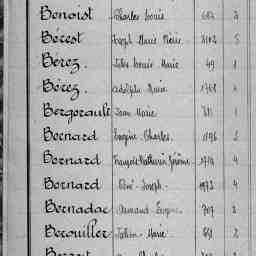 Benoist Charles Louis 3
Bérest Joseph Marie Pierre 5
Bérez. Jules Louis Marie 49 1
Bérez. Adolphe Marie 1768 4
Bergerault Jean Marie 1
Bernard Eugène Charles. 1196 2
Bernard François Mathurin Jérôme 1714 4
Bernard René Joseph. 1973 4
Bernadac Armand Eugène 707 2
Berouiller Julien Marie 661 2